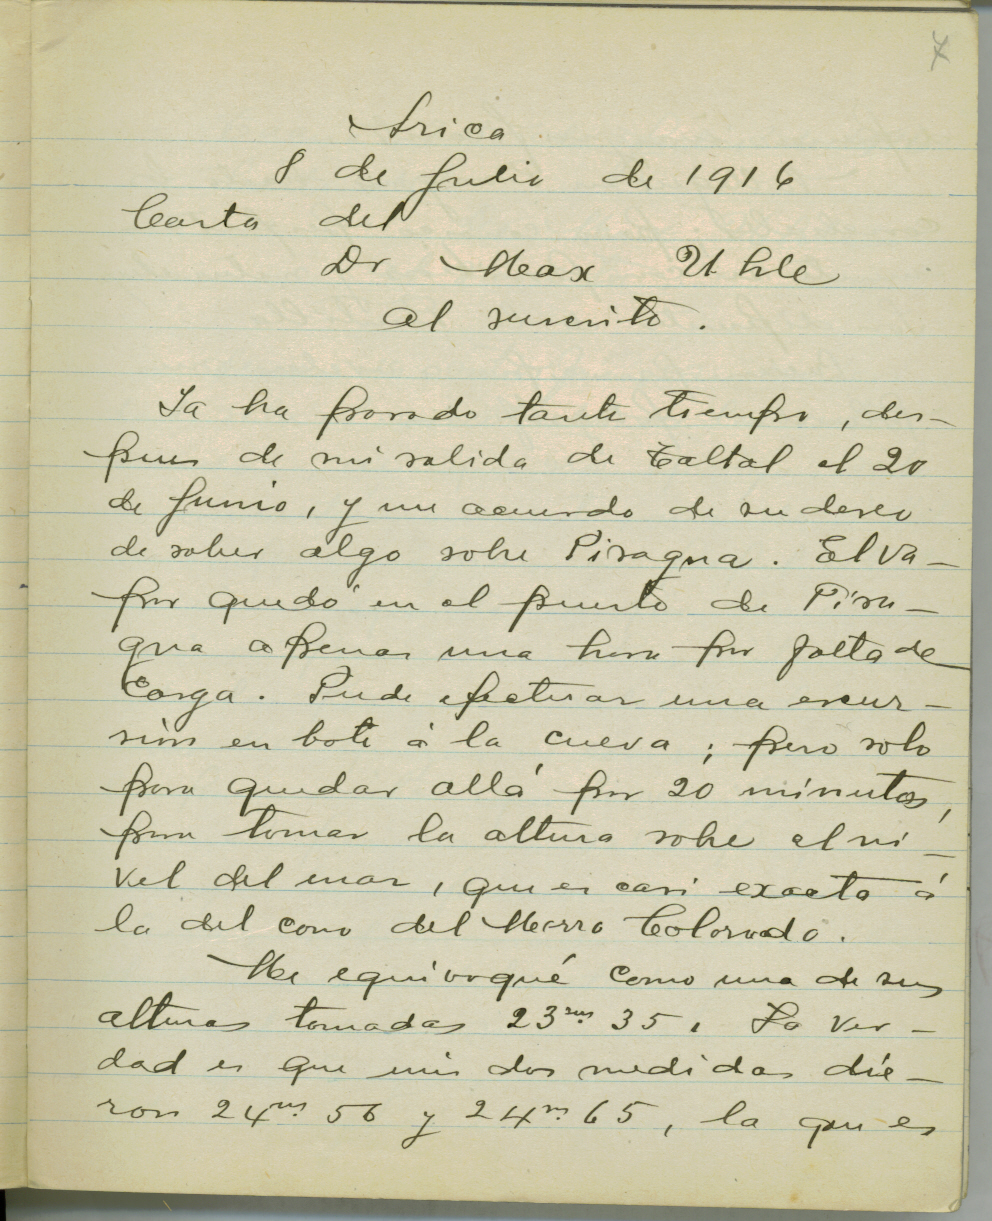 4
Arica
8 de Julio de 1916
Carta del
Dr Max Uhle
al suscrito.
Ya ha pasado tanto tiempo, des-
pues de mi salida de Taltal el 20
de Junio, y me acuerdo de su deseo
de saber algo sobre Pisagua. El va-
por quedó en el puerto de Pisa-
gua apenas una hora por falta de
Carga. Pude efectuar una escur-
sión en bote á la cueva; pero solo
para quedar allá por 20 minutos,
para tomar la altura sobre el ni-
vel del mar, que es casi exacta á
la del cono del Morro Colorado.
Me equivoqué como una de sus
alturas tomadas 23ms. 35. La ver-
dad es que mis dos medidas die-
ron 24ms. 56 y 24ms. 65, la que es